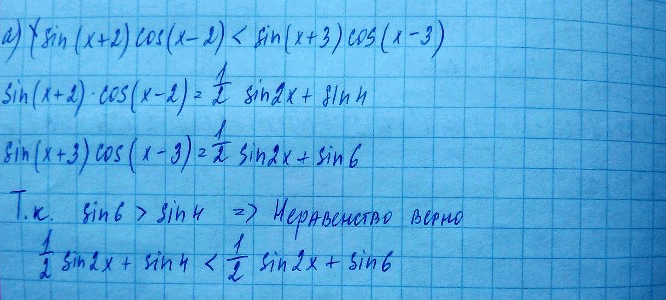 а) sin(x+2)cos(x-2) < sin(x+3)cos(x-3)
sin(x+2)·cos(x-2) = 1/2 sin2x + sin4
sin(x+3)cos(x-3) = 1/2 sin2x + sin6
Т.к. sin6 > sin4 => Неравенство верно
1/2 sin2x + sin4 < 1/2 sin2x + sin6